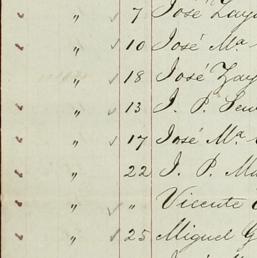 ✓ " ✓ 7 José Zay
✓ " ✓ 10 José Mª
" ✓ 18 José Zay
✓ " ✓ 13 J. P.
✓ " ✓ 17 José Mª
✓ " 22 J. P. Ma
✓ " ✓ " Vicente
✓ " ✓ 25 Miguel G